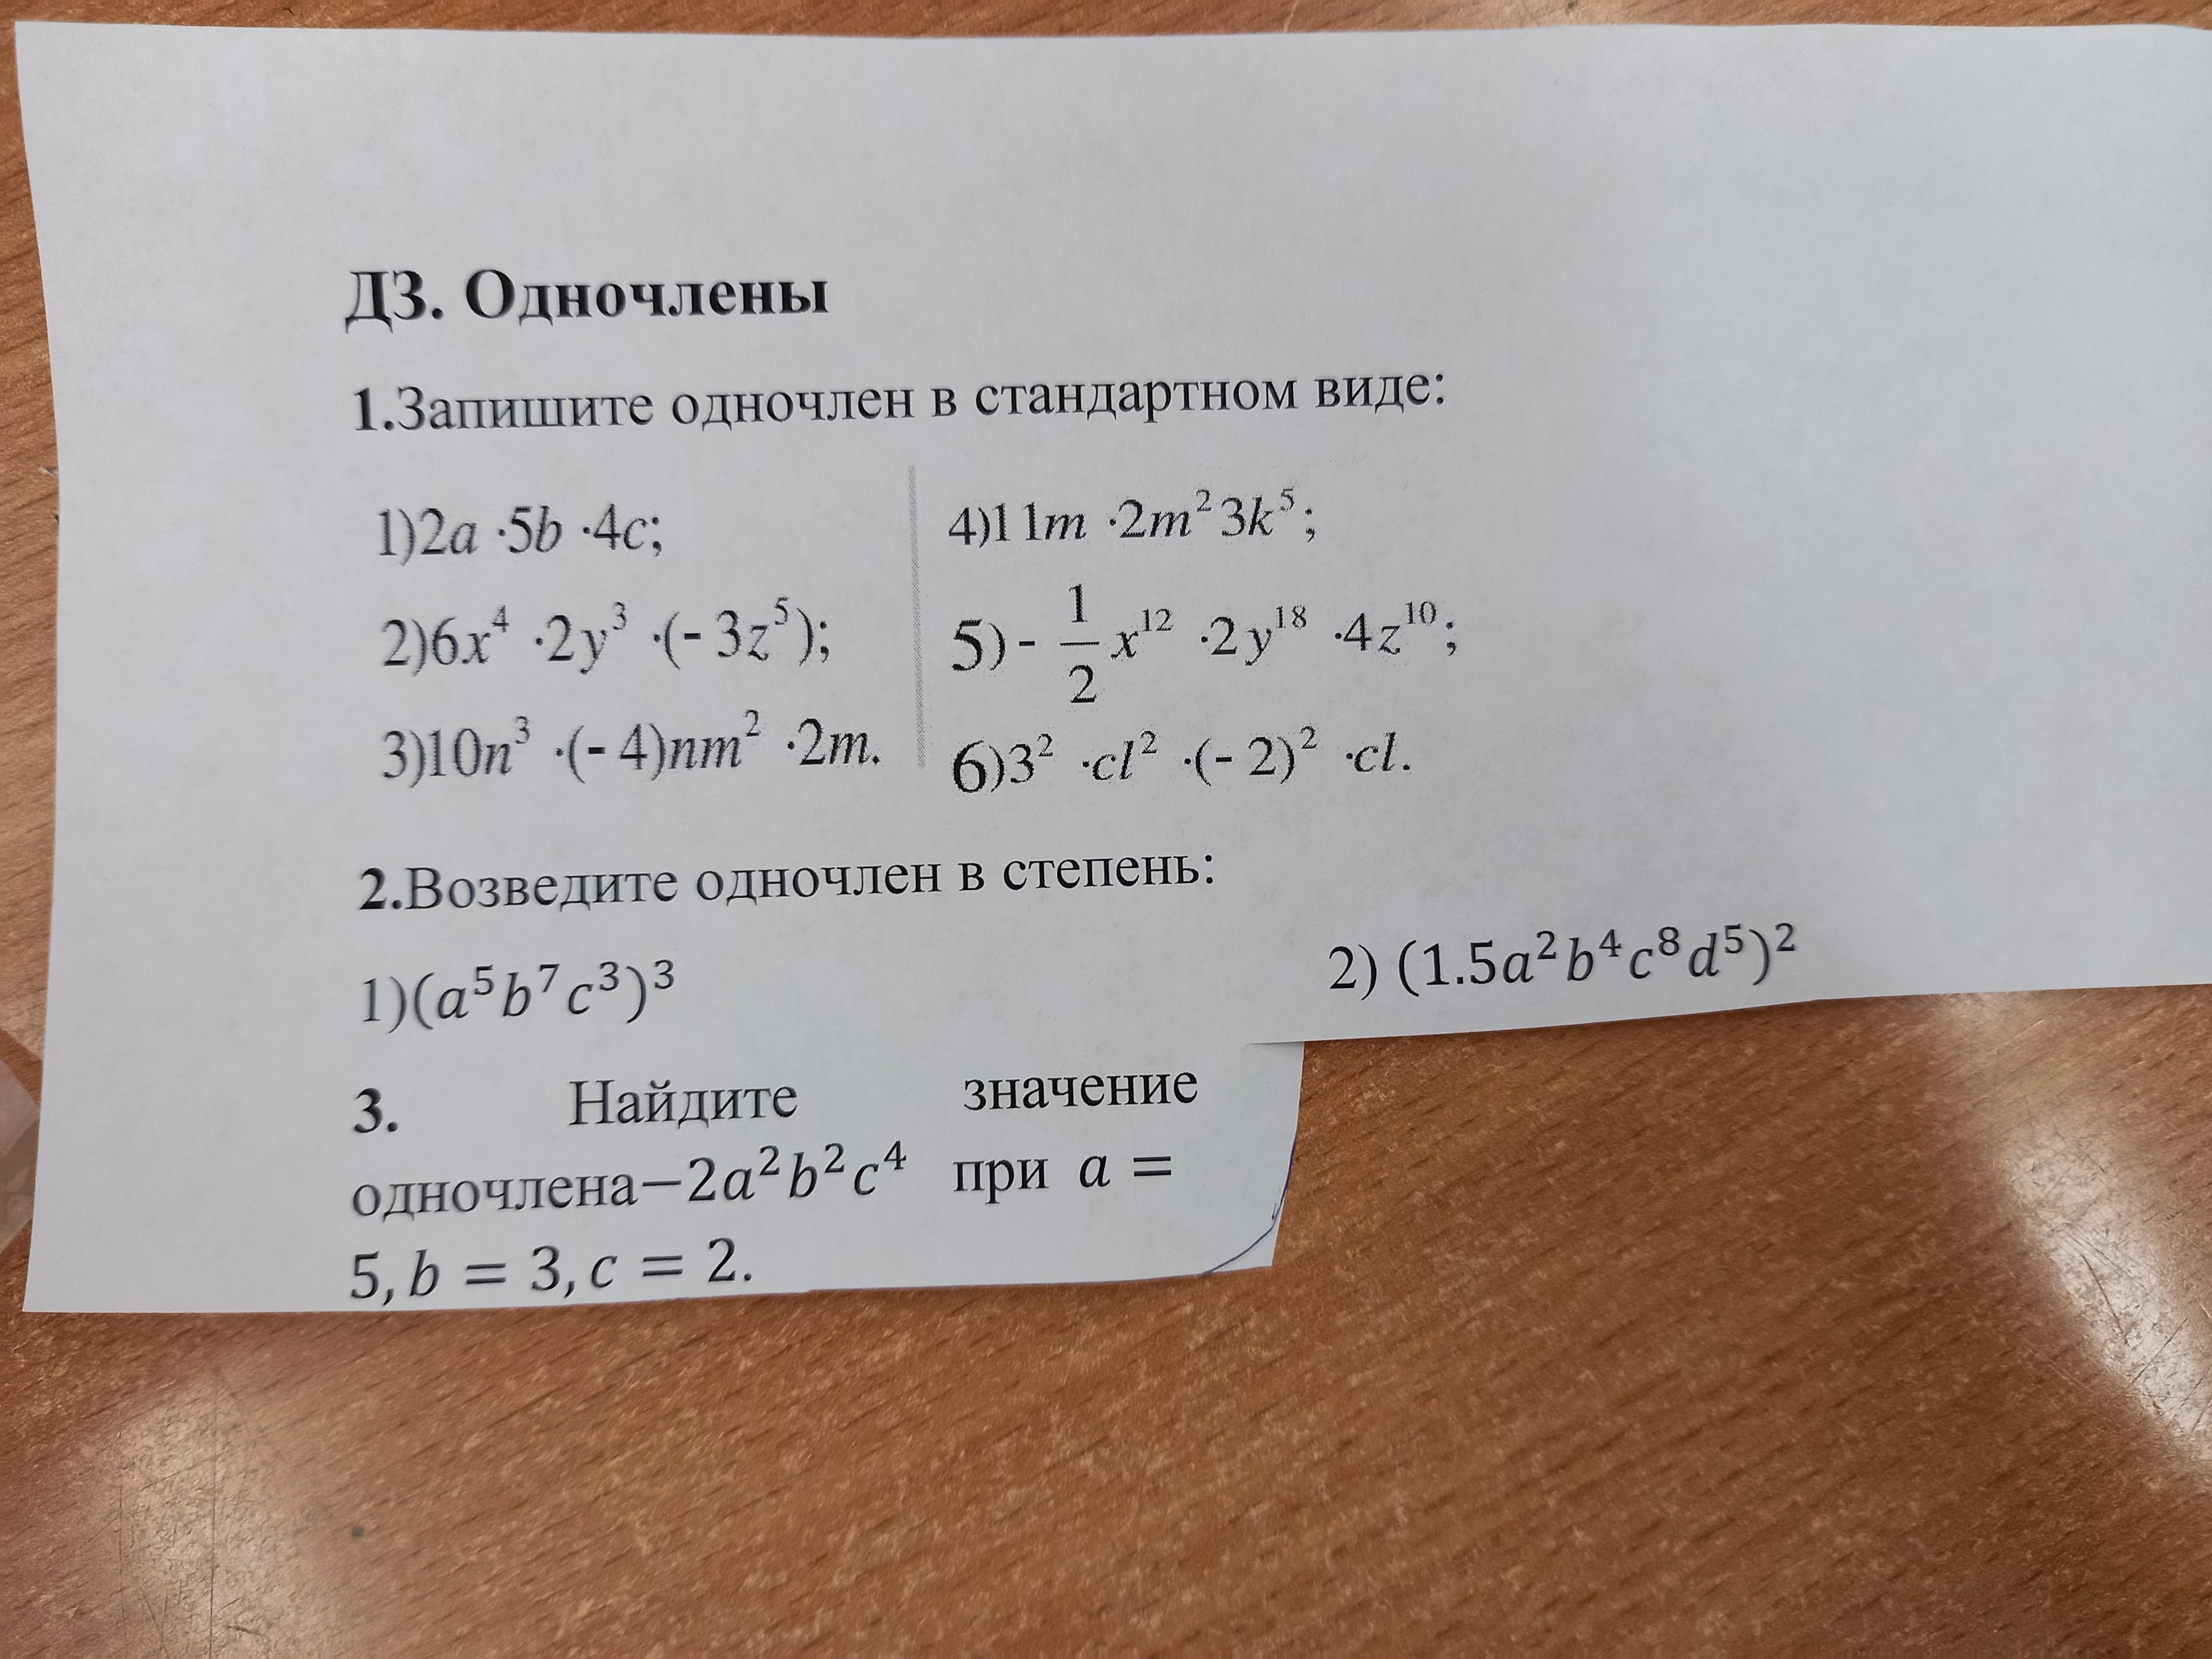 ДЗ. Одночлены
1.Запишите одночлен в стандартном виде:
1)2a ·5b ·4c;
2)6x⁴ ·2y³ ·(- 3z⁵);
3)10n³ ·(- 4)nm² ·2m.
4)11m ·2m²3k⁵;
5)- 1/2 x¹² ·2y¹⁸ ·4z¹⁰;
6)3² ·cl² ·(- 2)² ·cl.
2.Возведите одночлен в степень:
1)(a⁵b⁷c³)³
2) (1.5a²b⁴c⁸d⁵)²
3. Найдите значение
одночлена−2a²b²c⁴ при a =
5, b = 3, c = 2.